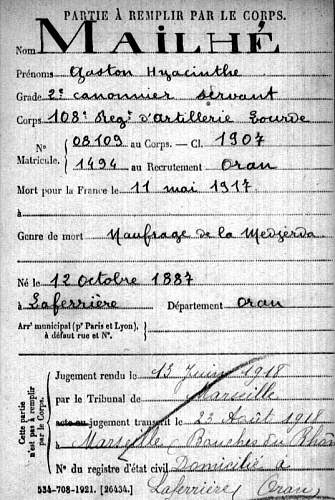 PARTIE À REMPLIR PAR LE CORPS.
Nom MAILHÉ
Prénoms Gaston Hyacinthe
Grade 2e canonnier servant
Corps 108e Regt d'Artillerie Lourde
N° Matricule. { 08109 au Corps. — Cl. 1907
1494 au Recrutement Oran
Mort pour la France le 11 mai 1917
à
Genre de mort Naufrage de la Medjerda
Né le 12 Octobre 1887
à Laferrière Département Oran
Arrt municipal (pr Paris et Lyon), à défaut rue et N°.
Cette partie n'est pas à remplir par le Corps.
Jugement rendu le 13 Juin 1918
par le Tribunal de Marseille
acte ou jugement transcrit le 23 Août 1918
à Marseille, Bouches du Rhône
N° du registre d'état civil Domicilié à
534-708-1921. [26434.] Laferrière, Oran